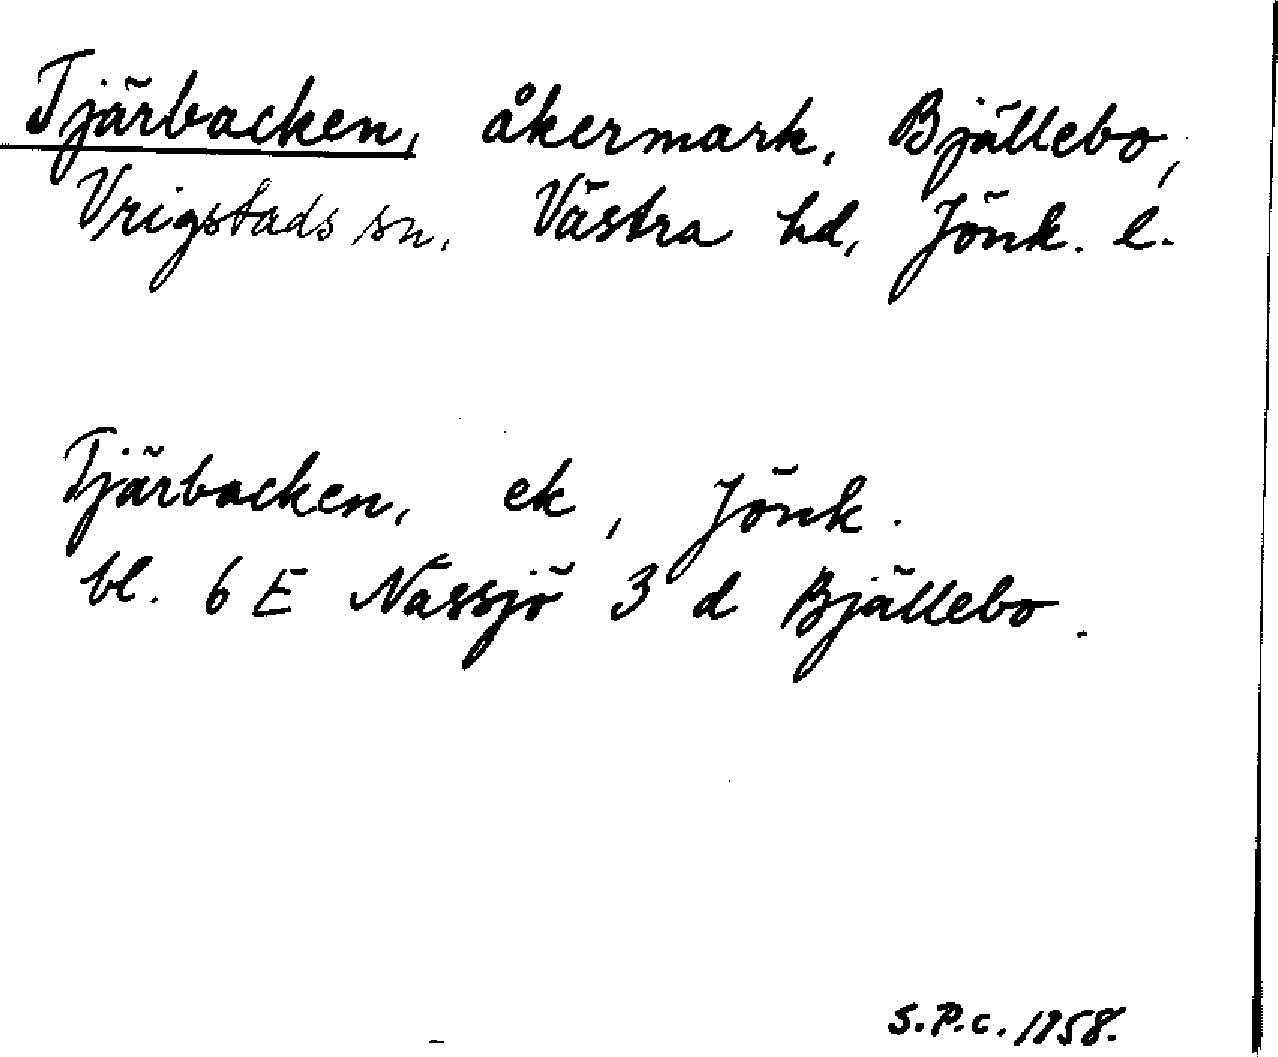 Tjärbacken, åkermark, Bjällebo,
Vrigstads sn, Västra hd, Jönk. l.
Tjärbacken, ek, Jönk.
bl. 6 E Nässjö 3 d Bjällebo.
S.P.c. 1958.